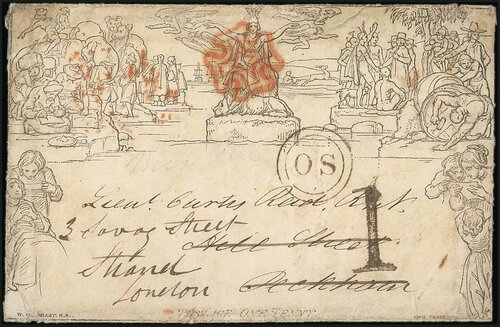 OS
Lieut. Curtis Reid, R.N.
3 Savoy Street
Hill Street
Strand
Peckham
London
1
POSTAGE ONE PENNY.
W. MULREADY, R.A.
JOHN THOMPSON